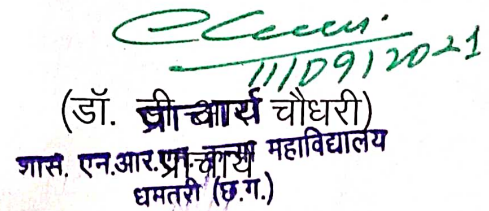 11/09/2021
(डॉ. चौधरी)
प्राचार्य
शास. एन.आर. कन्या महाविद्यालय
धमतरी (छ.ग.)